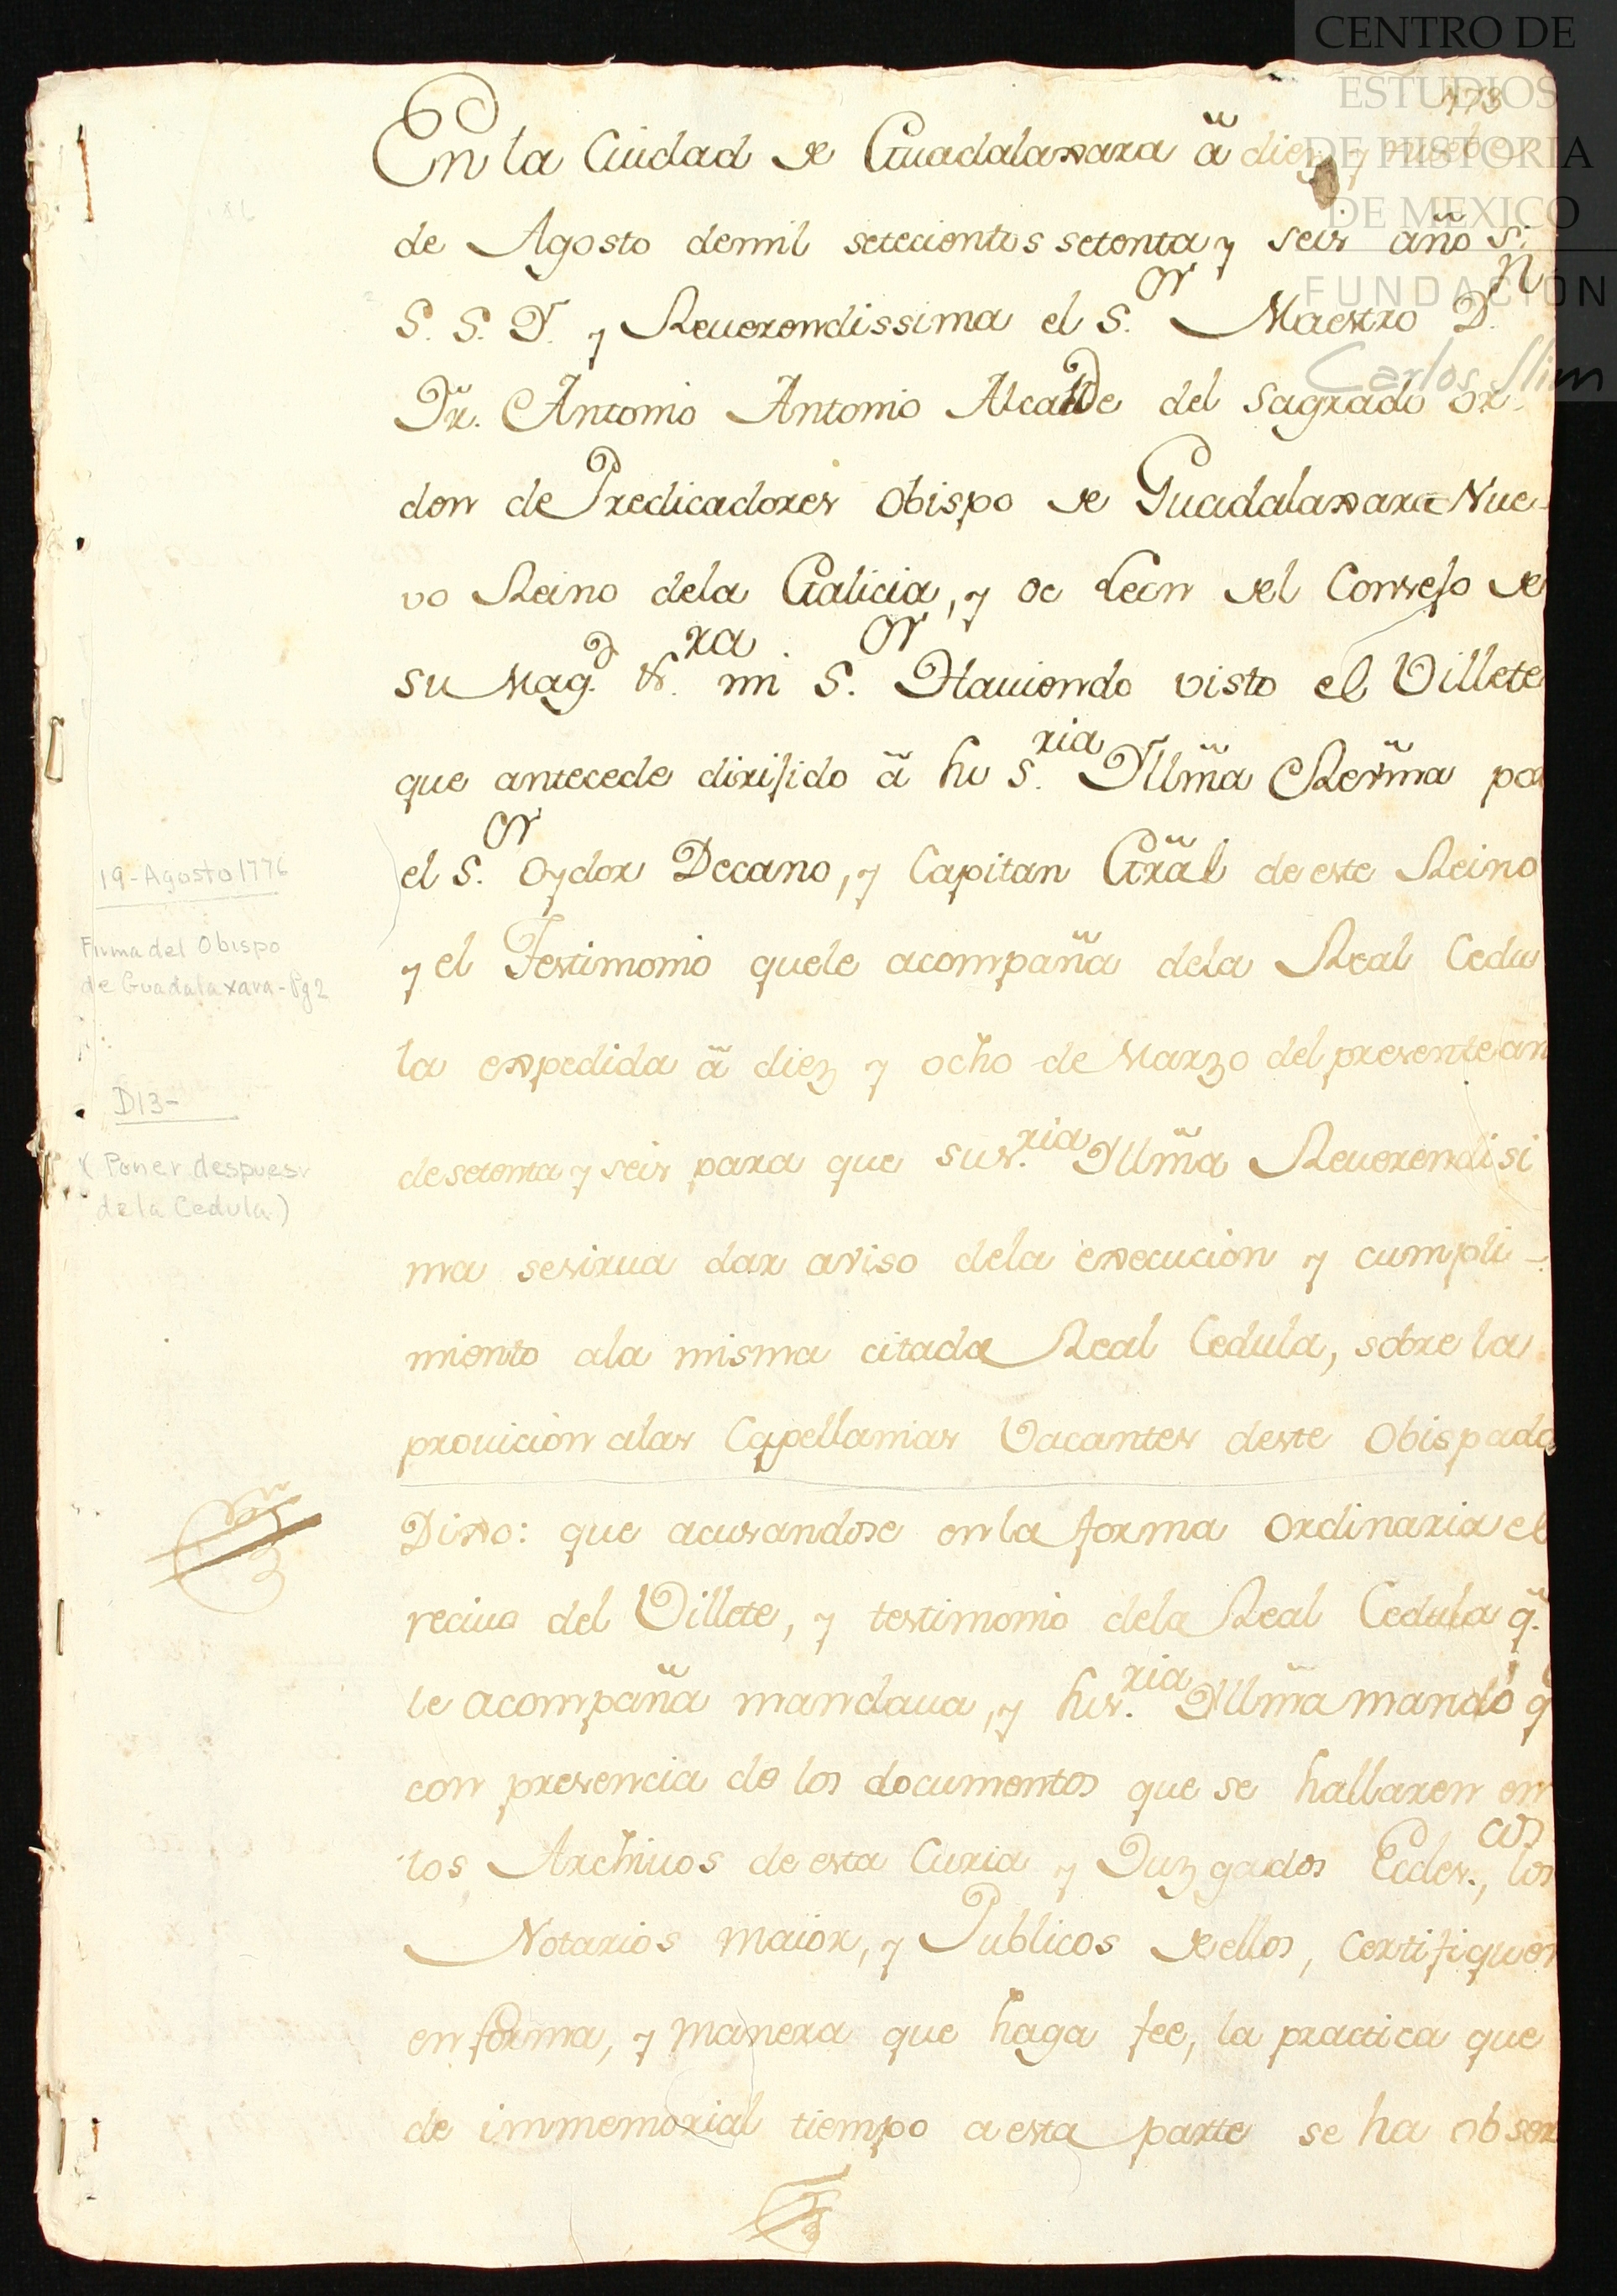 CENTRO DE
ESTUDIOS
DE HISTORIA
DE MEXICO
FUNDACIÓN
Carlos Slim
En la Ciudad de Guadalaxara à diez y nuebe
de Agosto demil setecientos setenta y seis años:
S. S. Y. y Reuerendissima el S.or Maestro D.n
Fr. Antonio Antonio Alcalde del Sagrado or-
den de Predicadores Obispo de Guadalaxara Nue-
vo Reino dela Galicia, y de Leon del Consejo de
su Mag.d &.ra mi S.or Hauiendo visto el Villete
que antecede dirijido â su S.ria Yllma Rerma por
el S.or Oydor Decano, y Capitan Gral de este Reino
y el Testimonio quele acompaña dela Real Cedu
la expedida â diez y ocho de Marzo del presente an
de setenta y seis para que su s.ria Yllma Reuerendisi
ma sesirua dar aviso dela execucion y cumpli-
miento ala misma citada Real Cedula, sobre la
prouicion alas Capellanias Vacantes deste Obispado
Dixo: que acusandose enla forma ordinaria el
reciuo del Villete, y testimonio dela Real Cedula q.
le acompaña mandaua, y su s.ria Yllma mandó q
con presencia de los documentos que se hallaren en
los Archiuos de esta Curia y Juzgados Ecles.cos, los
Notarios maior, y Publicos de ellos, certifiquen
en forma, y manera que haga fee, la practica que
de immemorial tiempo a esta parte se ha obser
19-Agosto 1776
Firma del Obispo
de Guadalaxara-Pg 2
D13-
(Poner despues
de la Cedula)